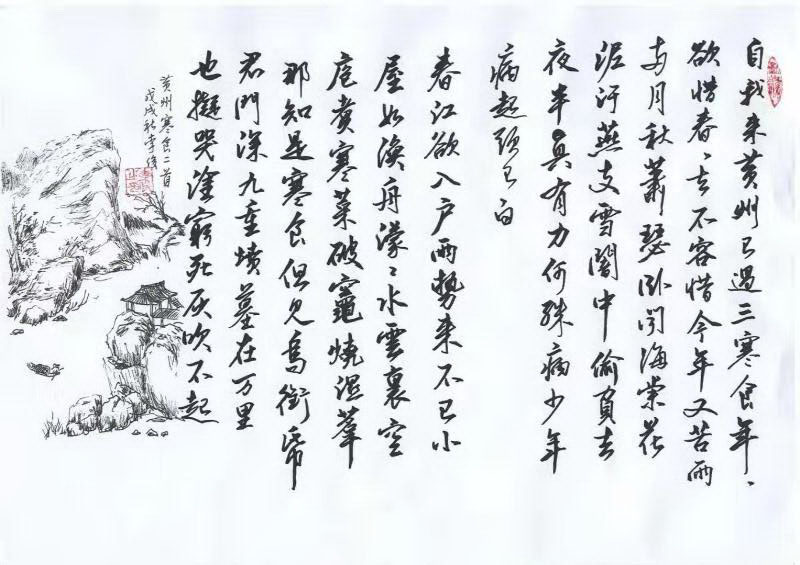 自我来黄州已過三寒食年、
欲惜春、去不容惜今年又苦雨
两月秋蕭瑟卧闻海棠花
泥汙燕支雪闇中偷負去
夜半真有力何殊病少年
病起頭已白
春江欲入户雨勢来不已小
屋如漁舟濛、水雲裏空
庖煮寒菜破竈燒濕葦
那知是寒食但見烏銜帋
君門深九重墳墓在万里
也擬哭塗窮死灰吹不起
黄州寒食二首
戊戌秋